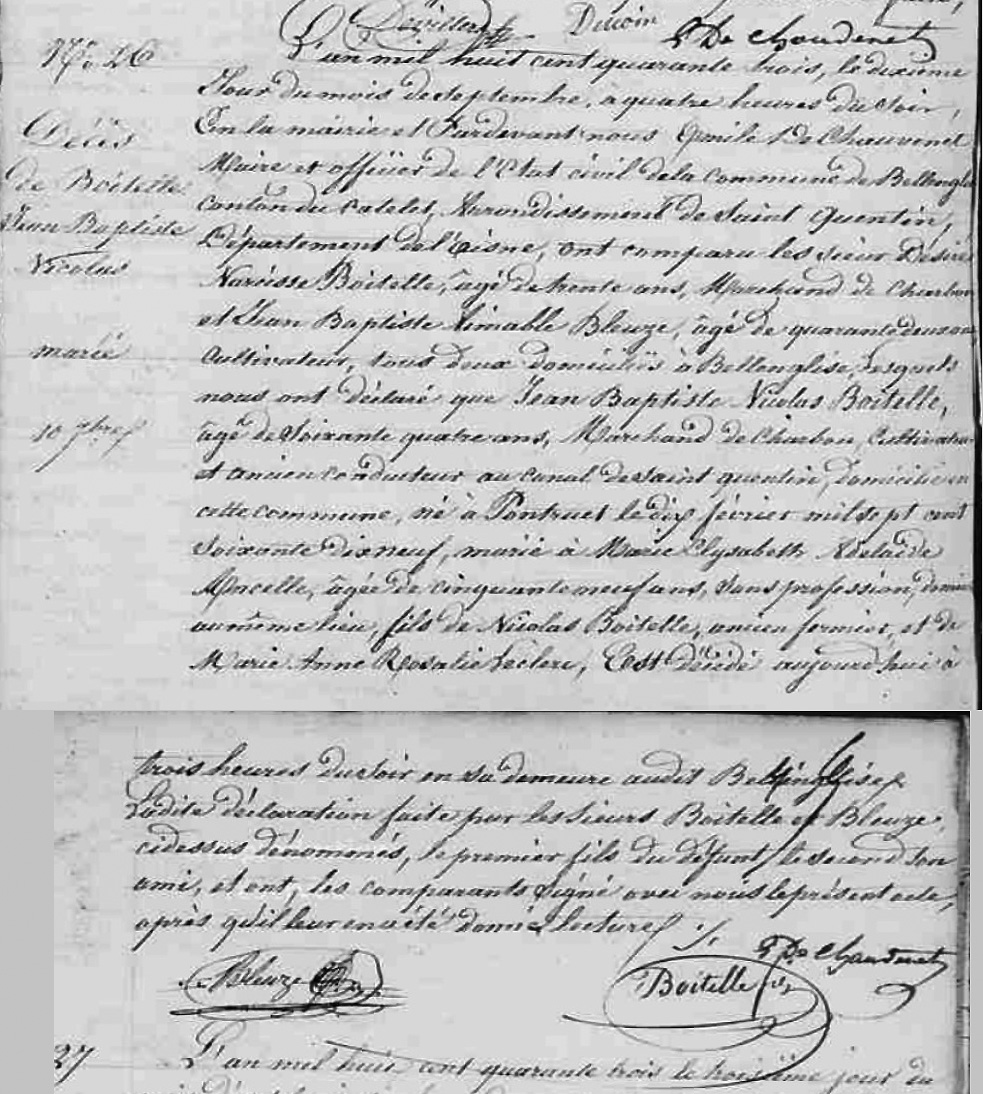 Devillers Druoin E De Chauvenet
N.° 26
L'an mil huit cent quarante trois, le dixième
Jour du mois de Septembre, à quatre heures du Soir,
En la mairie et Pardevant nous Emile De Chauvenet
Maire et officier de l'Etat civil de la Commune de Bellenglise
Canton du Catelet, Arrondissement de Saint Quentin,
Département de l'Aisne, ont comparu les sieur Désiré
Narcisse Boitelle, âgé de trente ans, Marchand de Charbon
et Jean Baptiste Aimable Bleuze, âgé de quarante deux ans
Cultivateur, tous deux domiciliés à Bellenglise, Lesquels
nous ont déclaré que Jean Baptiste Nicolas Boitelle,
âgé de Soixante quatre ans, Marchand de Charbon, Cultivateur
et ancien conducteur au canal de Saint quentin, domicilié en
cette commune, né à Pontruet le dix février mil sept cent
Soixante dix neuf, marié à Marie Elysabeth Adelaïde
Morcelle, âgée de cinquante neuf ans, Sans profession,
au même lieu, fils de Nicolas Boitelle, ancien fermier, et de
Marie Anne Rosalie Leclerc, Est décédé aujourd'hui à
Décès
de Boitelle
Jean Baptiste
Nicolas
marié
10 7bre
trois heures du Soir en sa demeure audit Bellenglise
Ladite déclaration faite par les Sieurs Boitelle et Bleuze,
cidessus dénommés, le premier fils du défunt, le second Son
ami, et ont, les comparants Signé avec nous le présent acte,
après qu'il leur en a été donné Lecture
Bleuze Boitelle E De Chauvenet
27
L'an mil huit cent quarante trois le troisième jour du